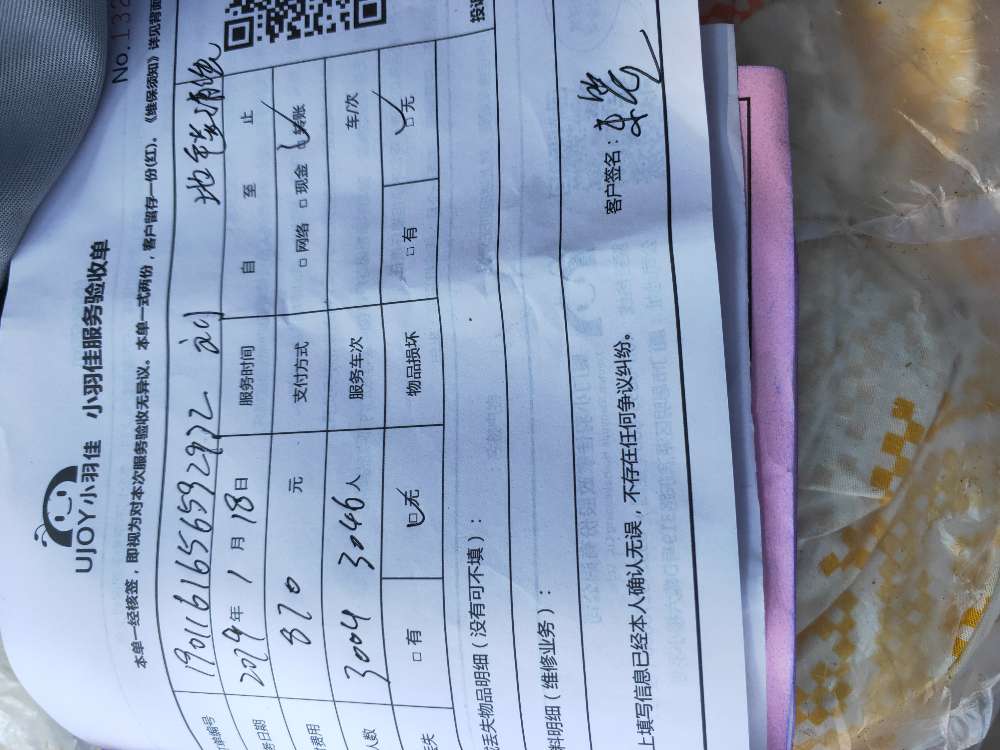 No.132
UJOY小羽佳 小羽佳服务验收单
本单一经核签，即视为对本次服务验收无异议。本单一式两份，客户留存一份(红)。《维保须知》详见背面
单编号 19011616156592972
地毯清洗
日期 2019年1月18日 服务时间 自 至 止
费用 820 元 支付方式 □网络 □现金 □转账
人数 3004 3046人 服务车次 车/次
丢失 □有 □无 物品损坏 □有 □无
丢失物品明细（没有可不填）：
料明细（维修业务）：
上填写信息已经本人确认无误，不存在任何争议纠纷。
客户签名：
投诉